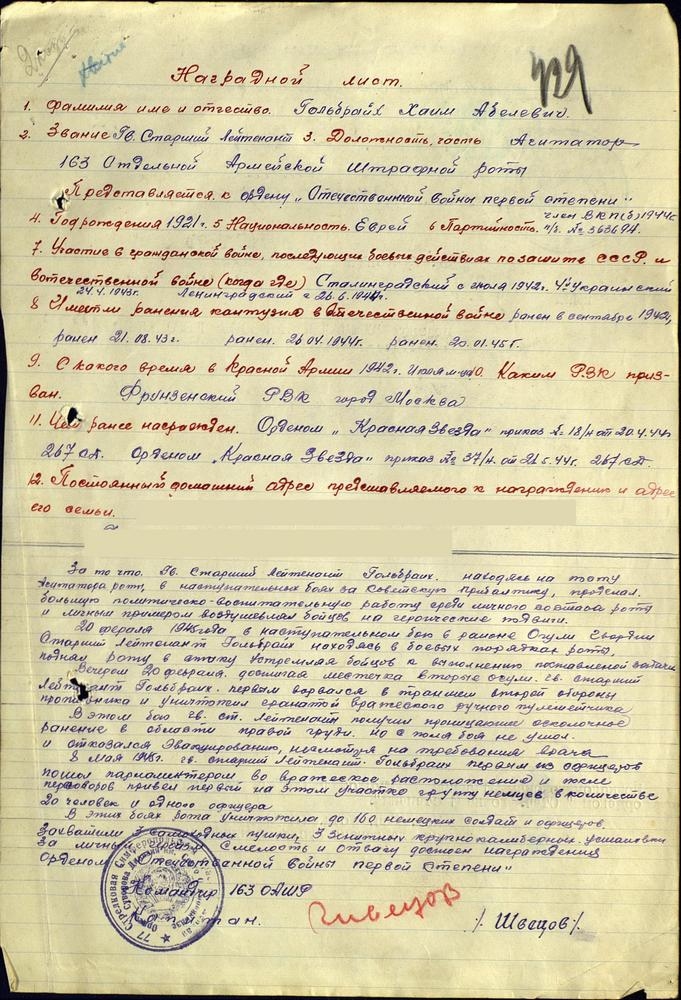 429
Наградной лист.
1. Фамилия име и отчество. Гольбрайх Хаим Абелевич.
2. Звание Гв. Старший Лейтенант 3. Должность, часть Агитатор
163 Отдельной Армейской Штрафной роты
Представляется к ордену „Отечественной войны первой степени"
член ВКП(б) 1944г
4. Год рождения 1921 г. 5 Национальность. Еврей 6 Партийность. п/б. № 363694.
7. Участие в гражданской войне, последующих боевых действиях по защите СССР и
вотечественной войне (когда где) Сталинградский с июля 1942г. 4й Украинский
24.4.1943г. Ленинградский с 26.6.1944г.
8 Имеетли ранения кантузия в Отечественной войне ранен в сентябре 1942г,
ранен 21.08.43г. ранен. 26.04.1944г. ранен. 20.01.45г.
9. С какого время в Красной Армии 1942г. Июля м-ца 10. Каким РВК приз-
ван. Фрунзенский РВК город Москва
11. Чем ранее награжден. Орденом „Красная Звезда" приказ № 18/н от 20.4.44г
267 сд. Орденом „Красная Звезда" приказ № 37/н. от 21.5.44г. 267 сд.
12. Постоянный домашний адрес представляемого к награждению и адрес
его семьи.
За то что, Гв. Старший Лейтенант Гольбрайх. находясь на посту
Агитатора роты, в наступательных боях за Советскую Прибалтику, проделал.
большую политическо-воспитательную работу среди личного состава роты
и личным примером воодушевлял бойцов на героические подвиги.
20 февраля 1945года в наступательном бою в районе Огули Гвардии
Старший Лейтенант Гольбрайх находясь в боевых порядках роты,
поднял роту в атаку устремляя бойцов к выполнению поставленой задачи
Вечером 20 февраля. достигая местечка Вторые осули. гв. старший
Лейтенант Гольбрайх. первым ворвался в траншеи второй обороны
противника и уничтожил гранатой вражеского ручного пулеметчика
В этом бою гв. ст. Лейтенант получил проницающее осколочное
ранение в области правой груди. но с поля боя не ушол.
и отказался Эвакуированию, несмотря на требования врача
8 Мая 1945г. гв. старший Лейтенант. Гольбрайх первым из офицеров
пошол парламентером во вражеское расположение и после
переговоров привел первый на этом участке группу немцев в количестве
20 человек и одного офицера
В этих боях рота уничтожила до 160 немецких солдат и офицеров.
Захватили 3 самоходных пушки, 3 зенитных крупнокалиберных установки
За личную Смелость и отвагу достоен награждения
Орденом „Отечественной Войны первой Степени"
Командир 163 ОАШР
Капитан. Швецов /Швецов/.